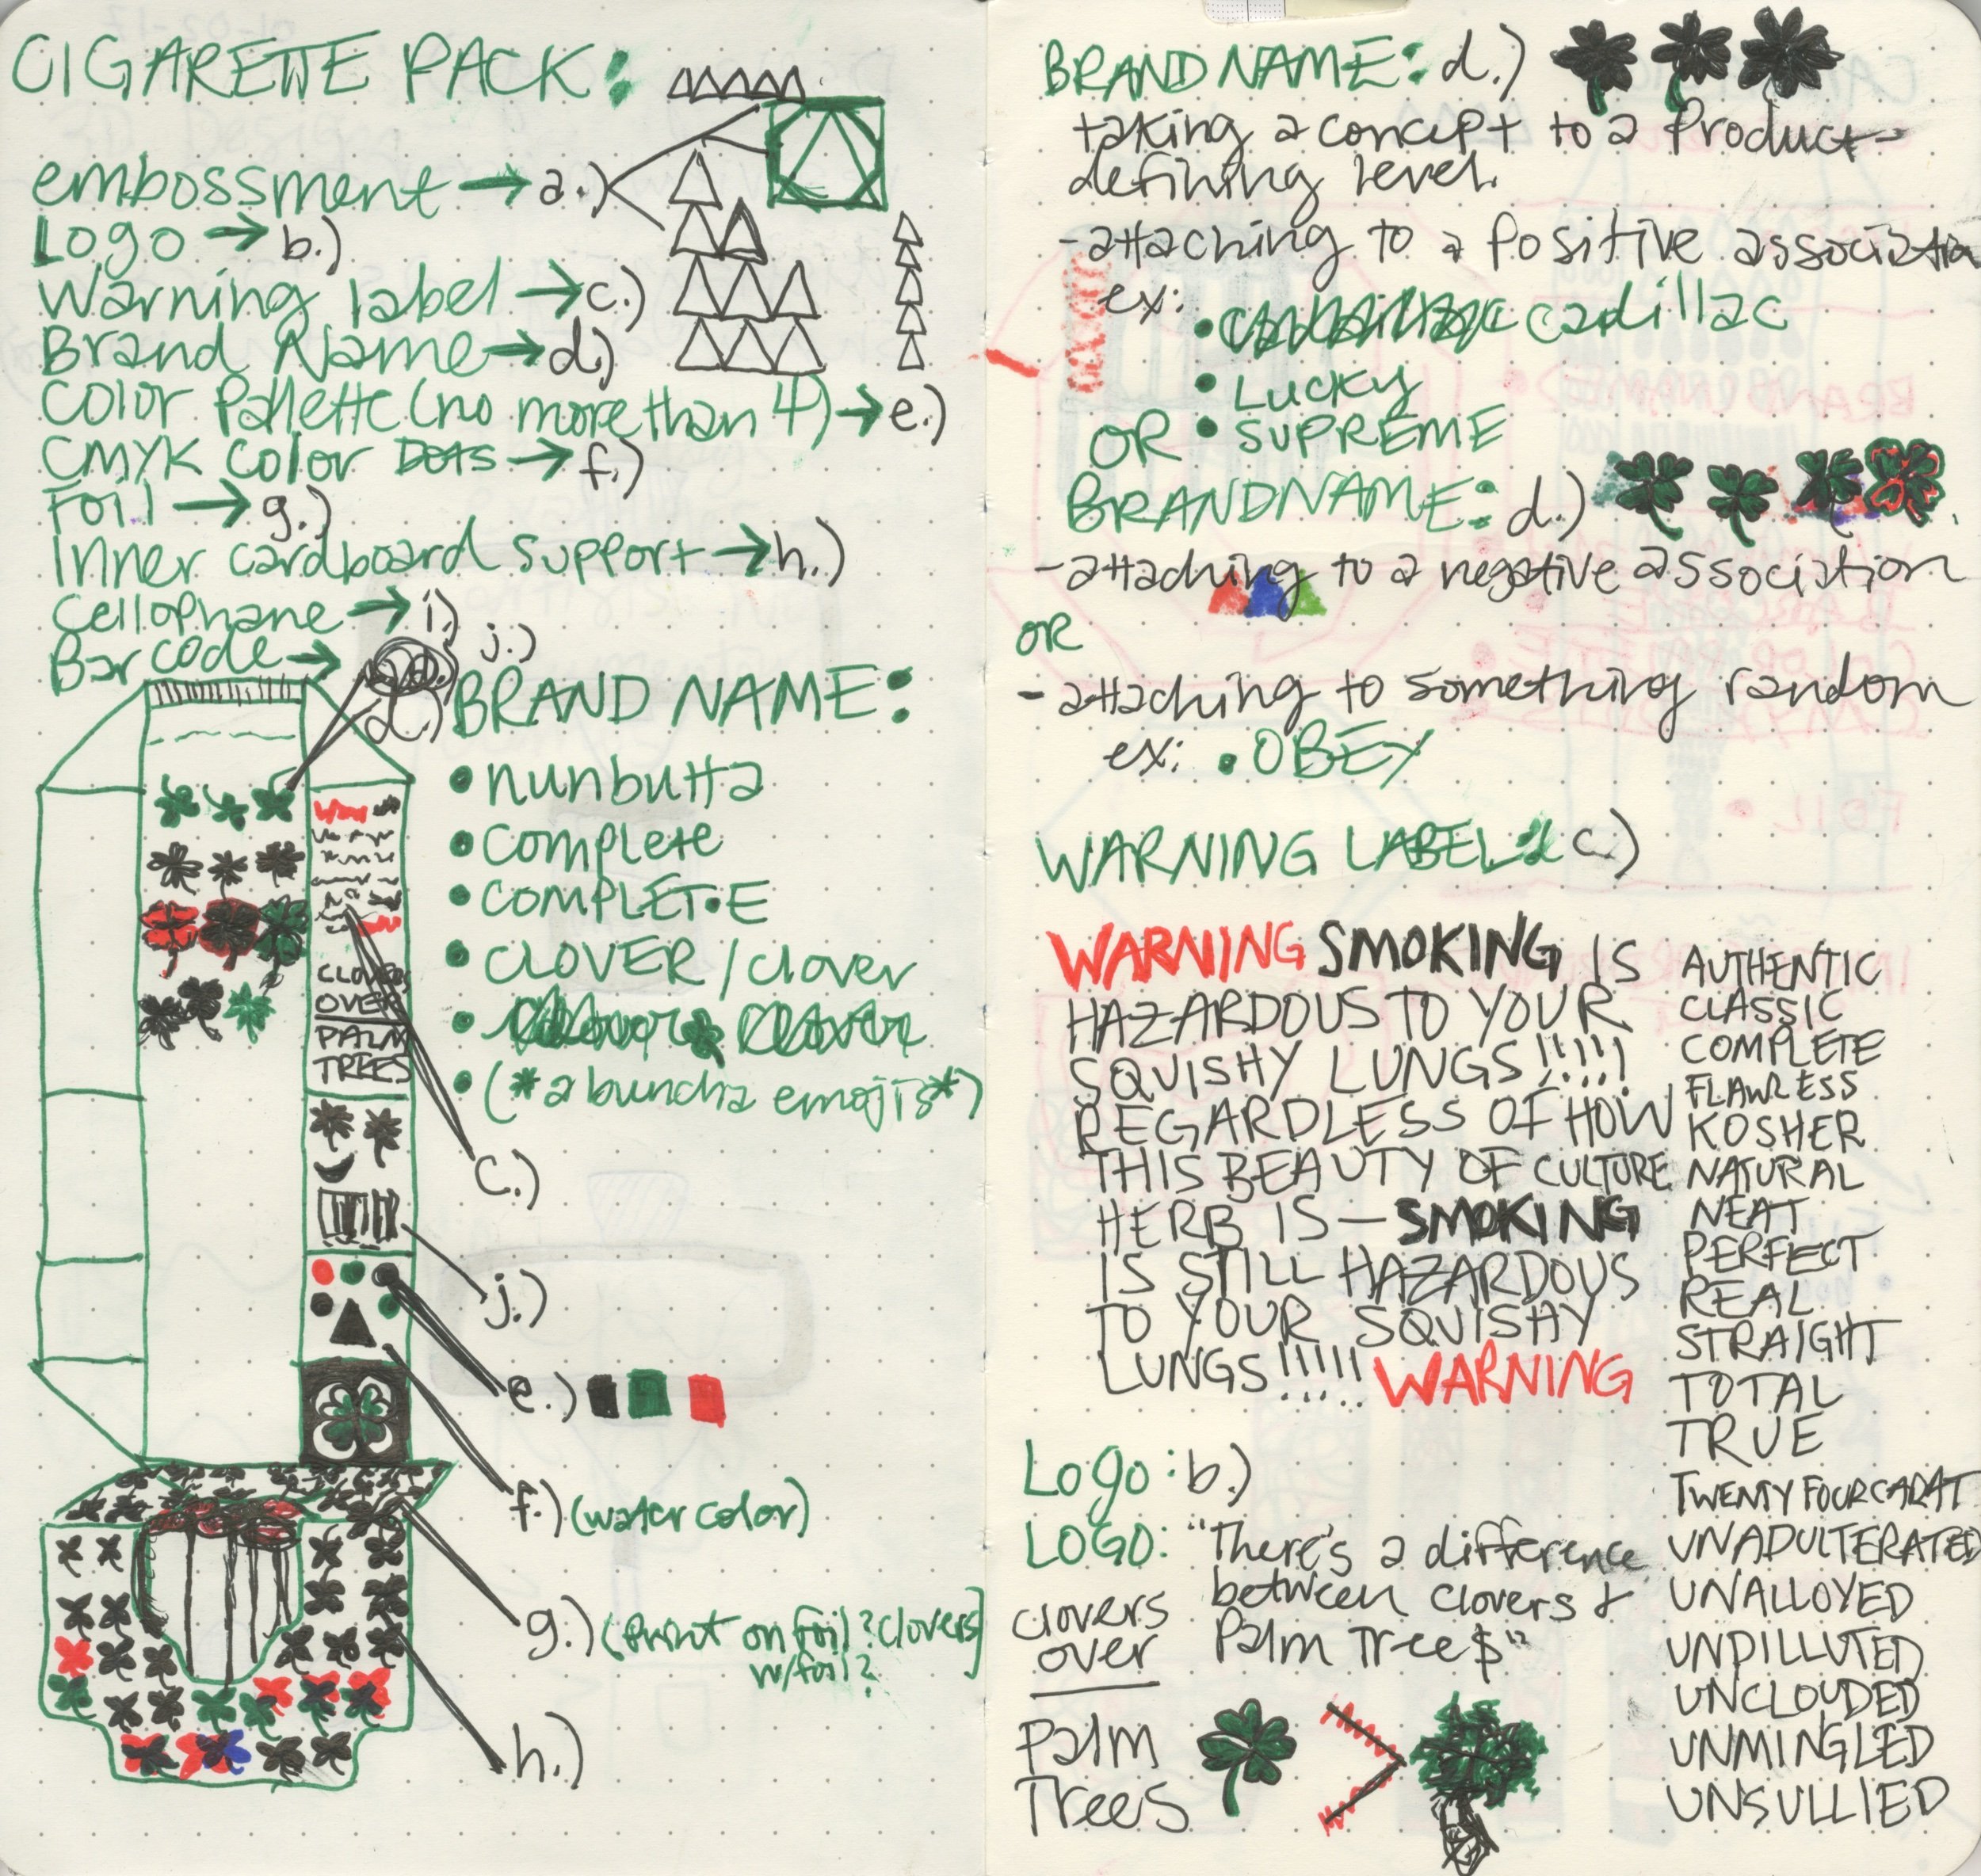 CIGARETTE PACK:
embossment → a.)
Logo → b.)
Warning label → c.)
Brand Name → d.)
Color Pallette (no more than 4) → e.)
CMYK Color DOTS → f.)
Foil → g.)
Inner cardboard support → h.)
Cellophane → i.)
Bar code → j.)
d.) BRAND NAME:
• nunbutta
• Complete
• COMPLET•E
• CLOVER / clover
• (*a buncha emojis*)
CLOVERS
OVER
PALM
TREES
c.)
j.)
e.)
f.) (water color)
g.) (Print on foil? clovers
w/foil?
h.)
BRAND NAME: d.)
taking a concept to a Product-
defining level.
- attaching to a Positive association
ex:
• cadillac
• Lucky
OR • SUPREME
BRANDNAME: d.)
- attaching to a negative association
OR
- attaching to something random
ex: • OBEY
WARNING LABEL: c.)
WARNING SMOKING IS
HAZARDOUS TO YOUR
SQUISHY LUNGS!!!!!
REGARDLESS OF HOW
THIS BEAUTY OF CULTURE
HERB IS — SMOKING
IS STILL HAZARDOUS
TO YOUR SQUISHY
LUNGS!!!!! WARNING
AUTHENTIC
CLASSIC
COMPLETE
FLAWLESS
KOSHER
NATURAL
NEAT
PERFECT
REAL
STRAIGHT
TOTAL
TRUE
TWENTY FOUR CARAT
UNADULTERATED
UNALLOYED
UNDILLUTED
UNCLOUDED
UNMINGLED
UNSULLIED
Logo: b.)
LOGO: "There's a difference
between clovers &
Palm Tree$"
clovers
over
Palm
Trees